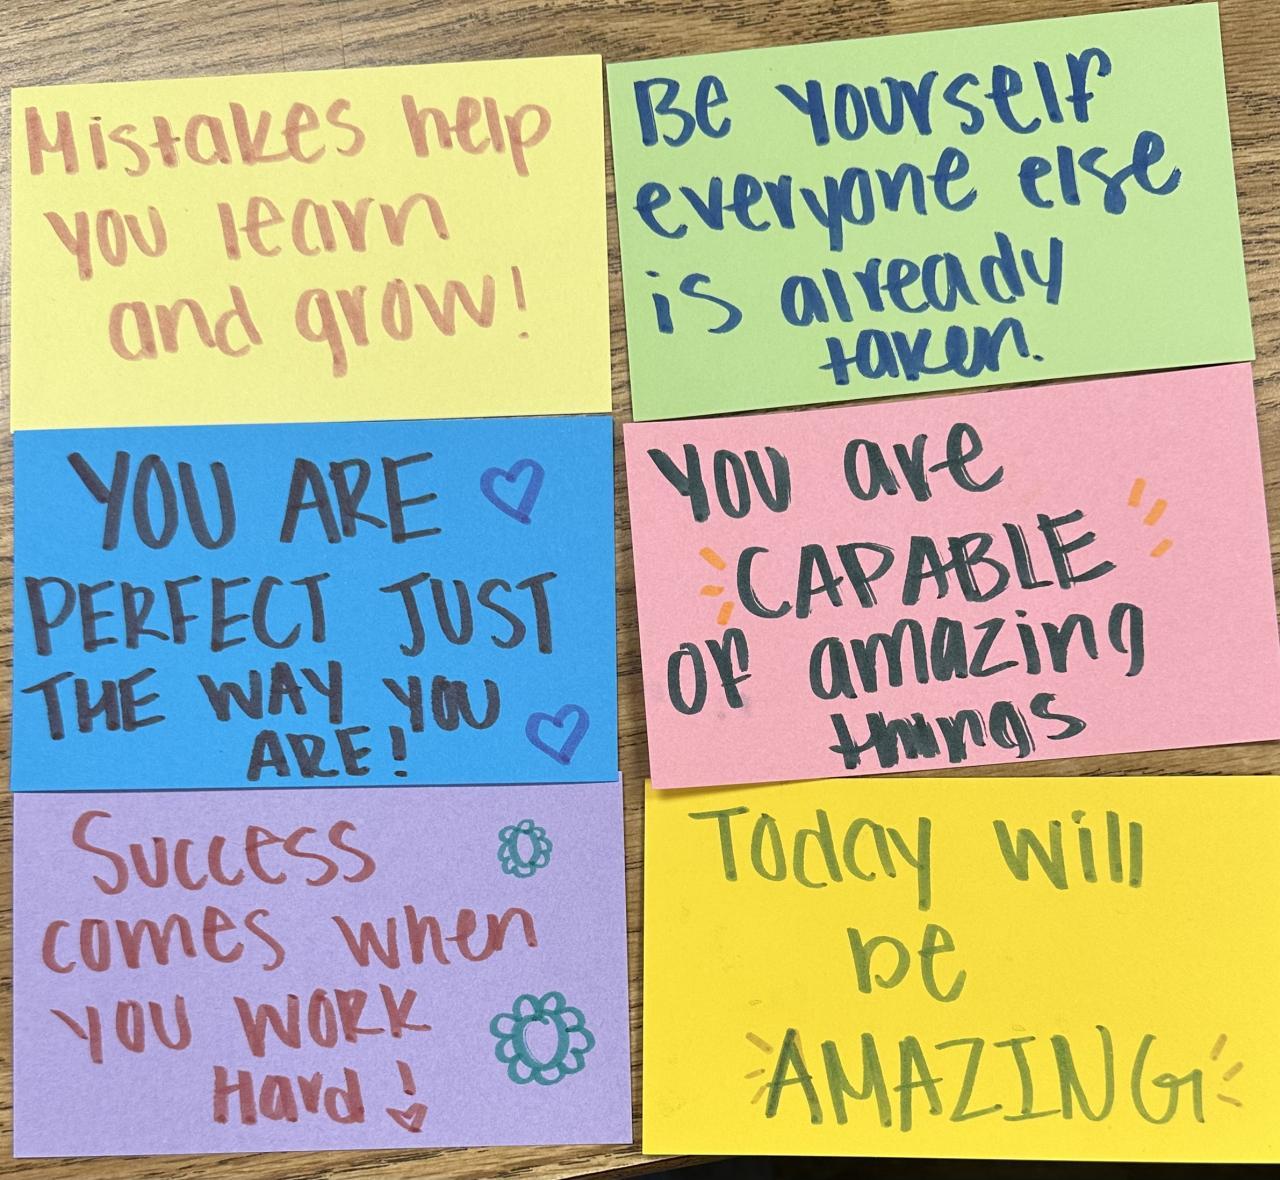 Mistakes help
you learn
and grow!
Be yourself
everyone else
is already
taken.
YOU ARE
PERFECT JUST
THE WAY YOU
ARE!
You are
CAPABLE
of amazing
things
Success
comes when
you WORK
Hard!
Today will
be
AMAZING